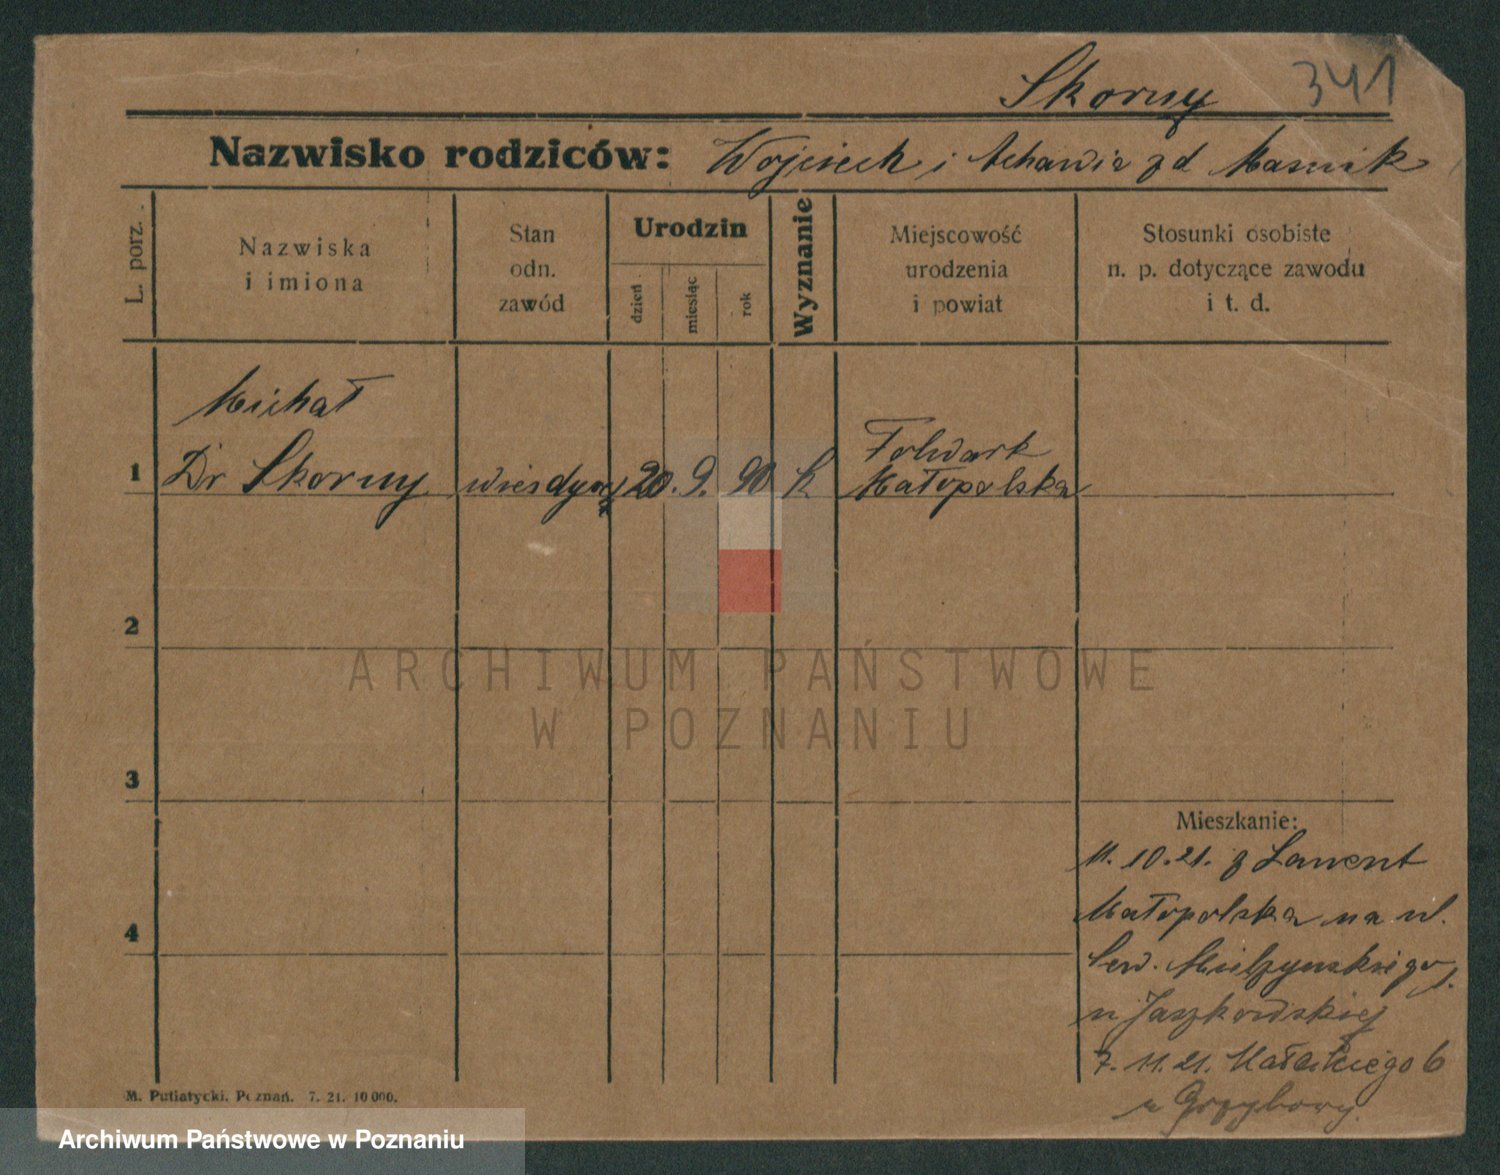 341
Skorny
Nazwisko rodziców: Wojciech i z d
L. porz.
Nazwiska
i imiona
Stan
odn.
zawód
Urodzin
dzień
miesiąc
rok
Wyznanie
Miejscowość
urodzenia
i powiat
Stosunki osobiste
n. p. dotyczące zawodu
i t. d.
Michał
1 Dr Skorny 20. 9. 90 k Folwark
Małopolska
2
3
4
Mieszkanie:
11. 10. 21. z
Małopolska na ul.
Sew. Mielżyńskiego
u Jaszkowskiej
7. 11. 21. 6
u
M. Putiatycki. Poznań. 7. 21. 10 000.
ARCHIWUM PAŃSTWOWE
W POZNANIU
Archiwum Państwowe w Poznaniu